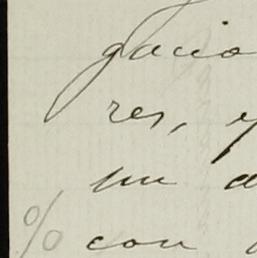 gacio
res, y
un d
% con